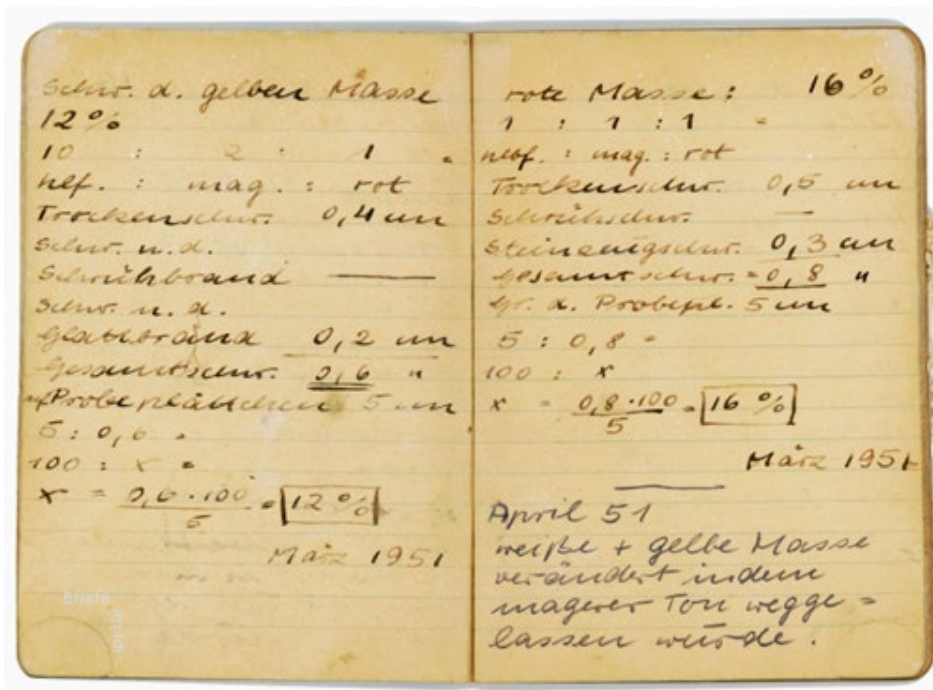 Schw. d. gelben Masse
12 %
10 : 2 : 1 =
hlf. : mag. : rot
Trockenschw. 0,4 cm
Schw. n. d.
Schrühbrand —
Schw. n. d.
Glattbrand 0,2 cm
Gesamtschw. 0,6 "
Probeplättchen 5 cm
5 : 0,6 =
100 : x =
x = 0,6 · 100 / 5 = 12 %
März 1951
rote Masse : 16 %
1 : 1 : 1 =
hlbf. : mag. : rot
Trockenschw. 0,5 cm
Schrühschw. —
Steinzeugschw. 0,3 cm
Gesamtschw. = 0,8 "
Gr. d. Probepl. 5 cm
5 : 0,8 =
100 : x
x = 0,8 · 100 / 5 = 16 %
März 1951
April 51
weiße + gelbe Masse
verändert indem
magerer Ton wegge =
lassen wurde .
Briefe